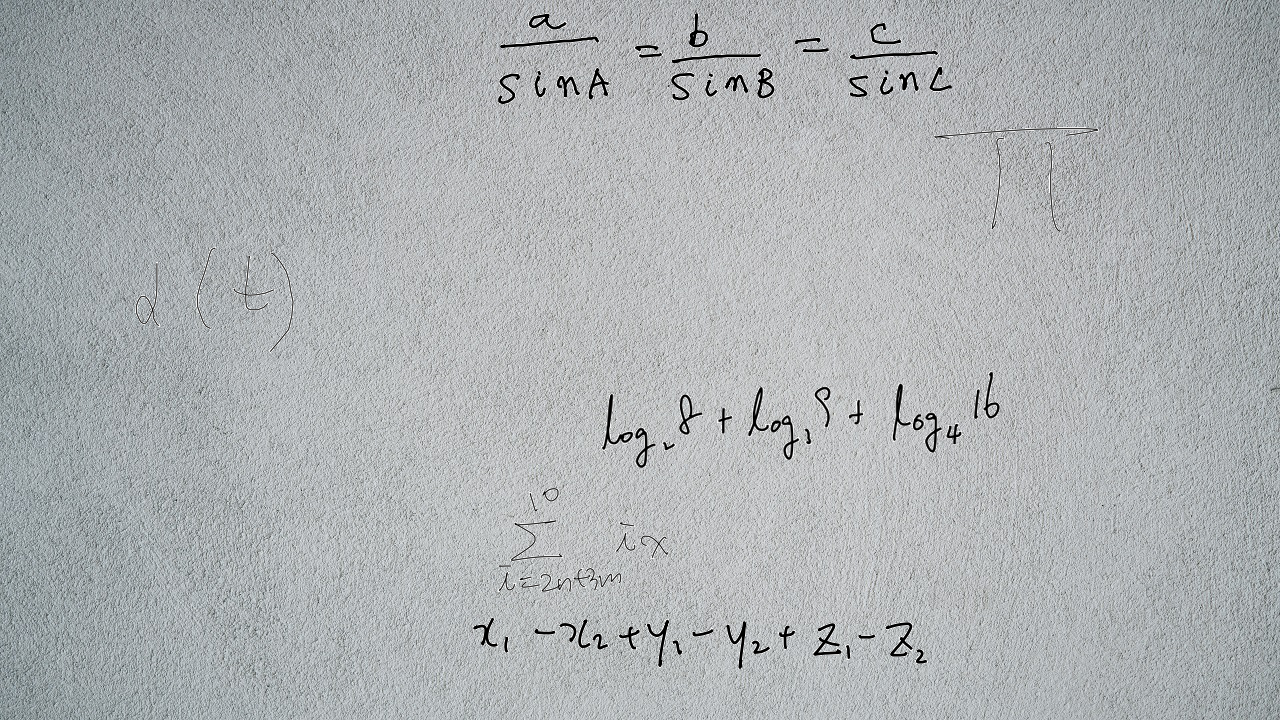 a/sinA = b/sinB = c/sinC
π
d(t)
log₂8 + log₃9 + log₄16
∑_{i=2n+3m}^{10} ix
x₁ - x₂ + y₁ - y₂ + z₁ - z₂